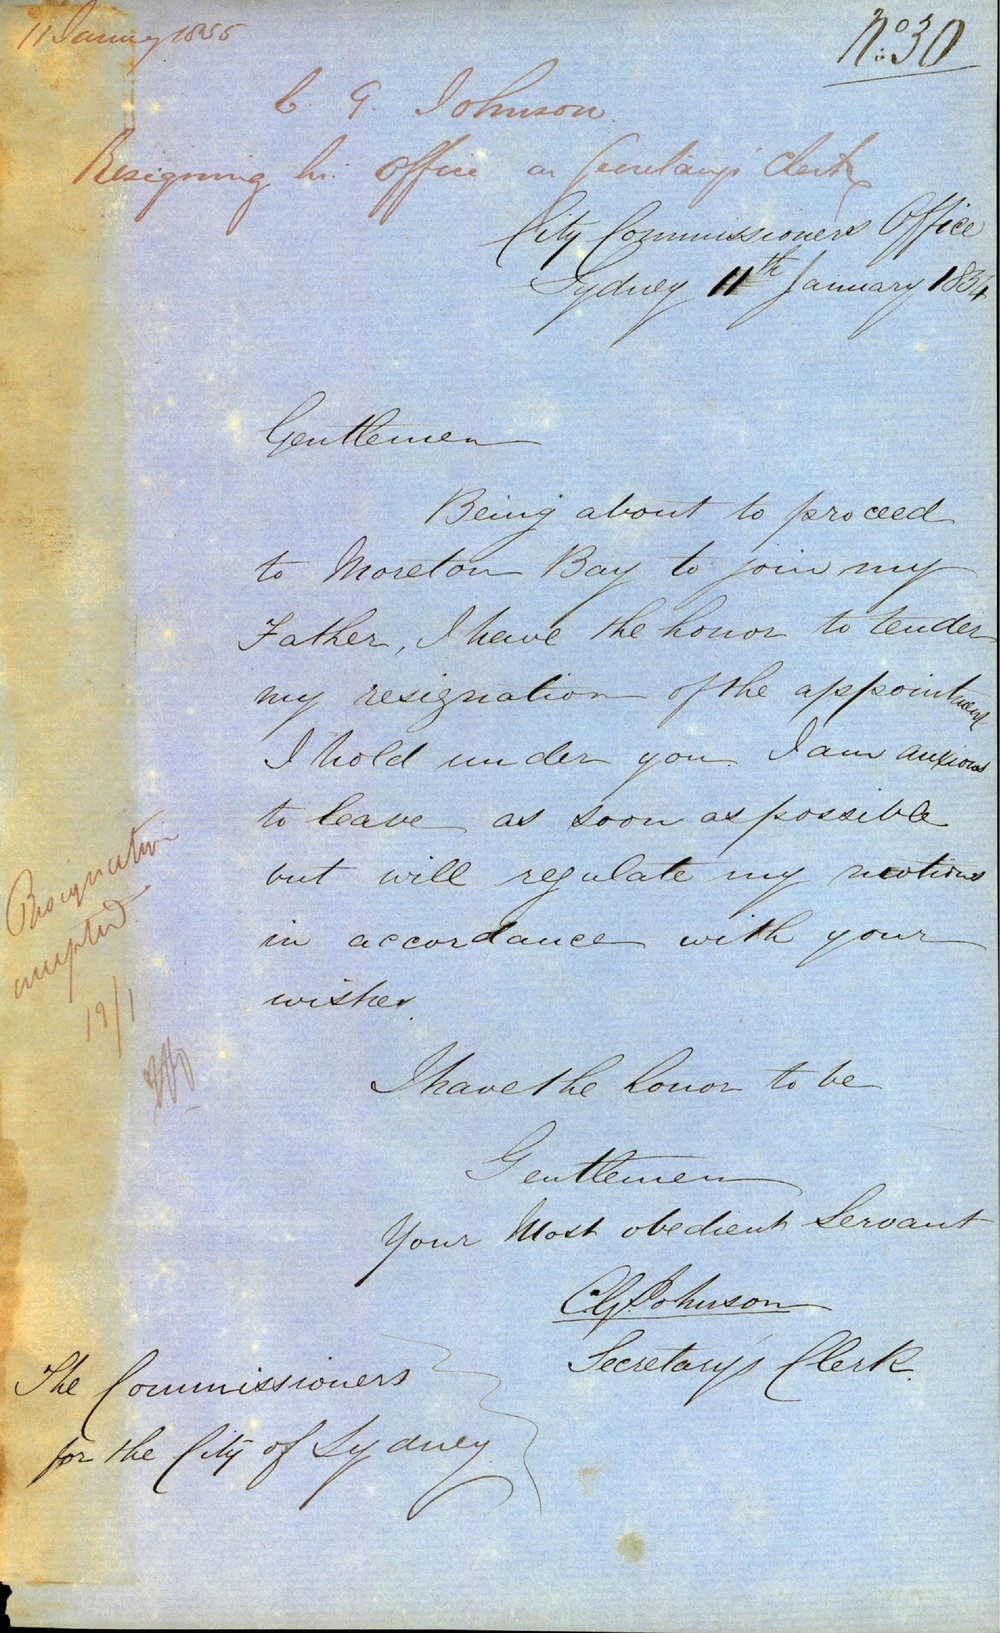 11 January 1855
No. 30
C. G. Johnson.
Resigning his office as Secretary's Clerk
City Commissioners Office
Sydney 11th January 1854
Gentlemen
Being about to proceed
to Moreton Bay to join my
Father, I have the honor to tender
my resignation of the appointment
I hold under you. I am anxious
to leave as soon as possible
but will regulate my motions
in accordance with your
wishes.
Resignation
accepted
19/1
I have the honor to be
Gentlemen
Your Most obedient Servant
C.G. Johnson
Secretary's Clerk.
The Commissioners
for the City of Sydney